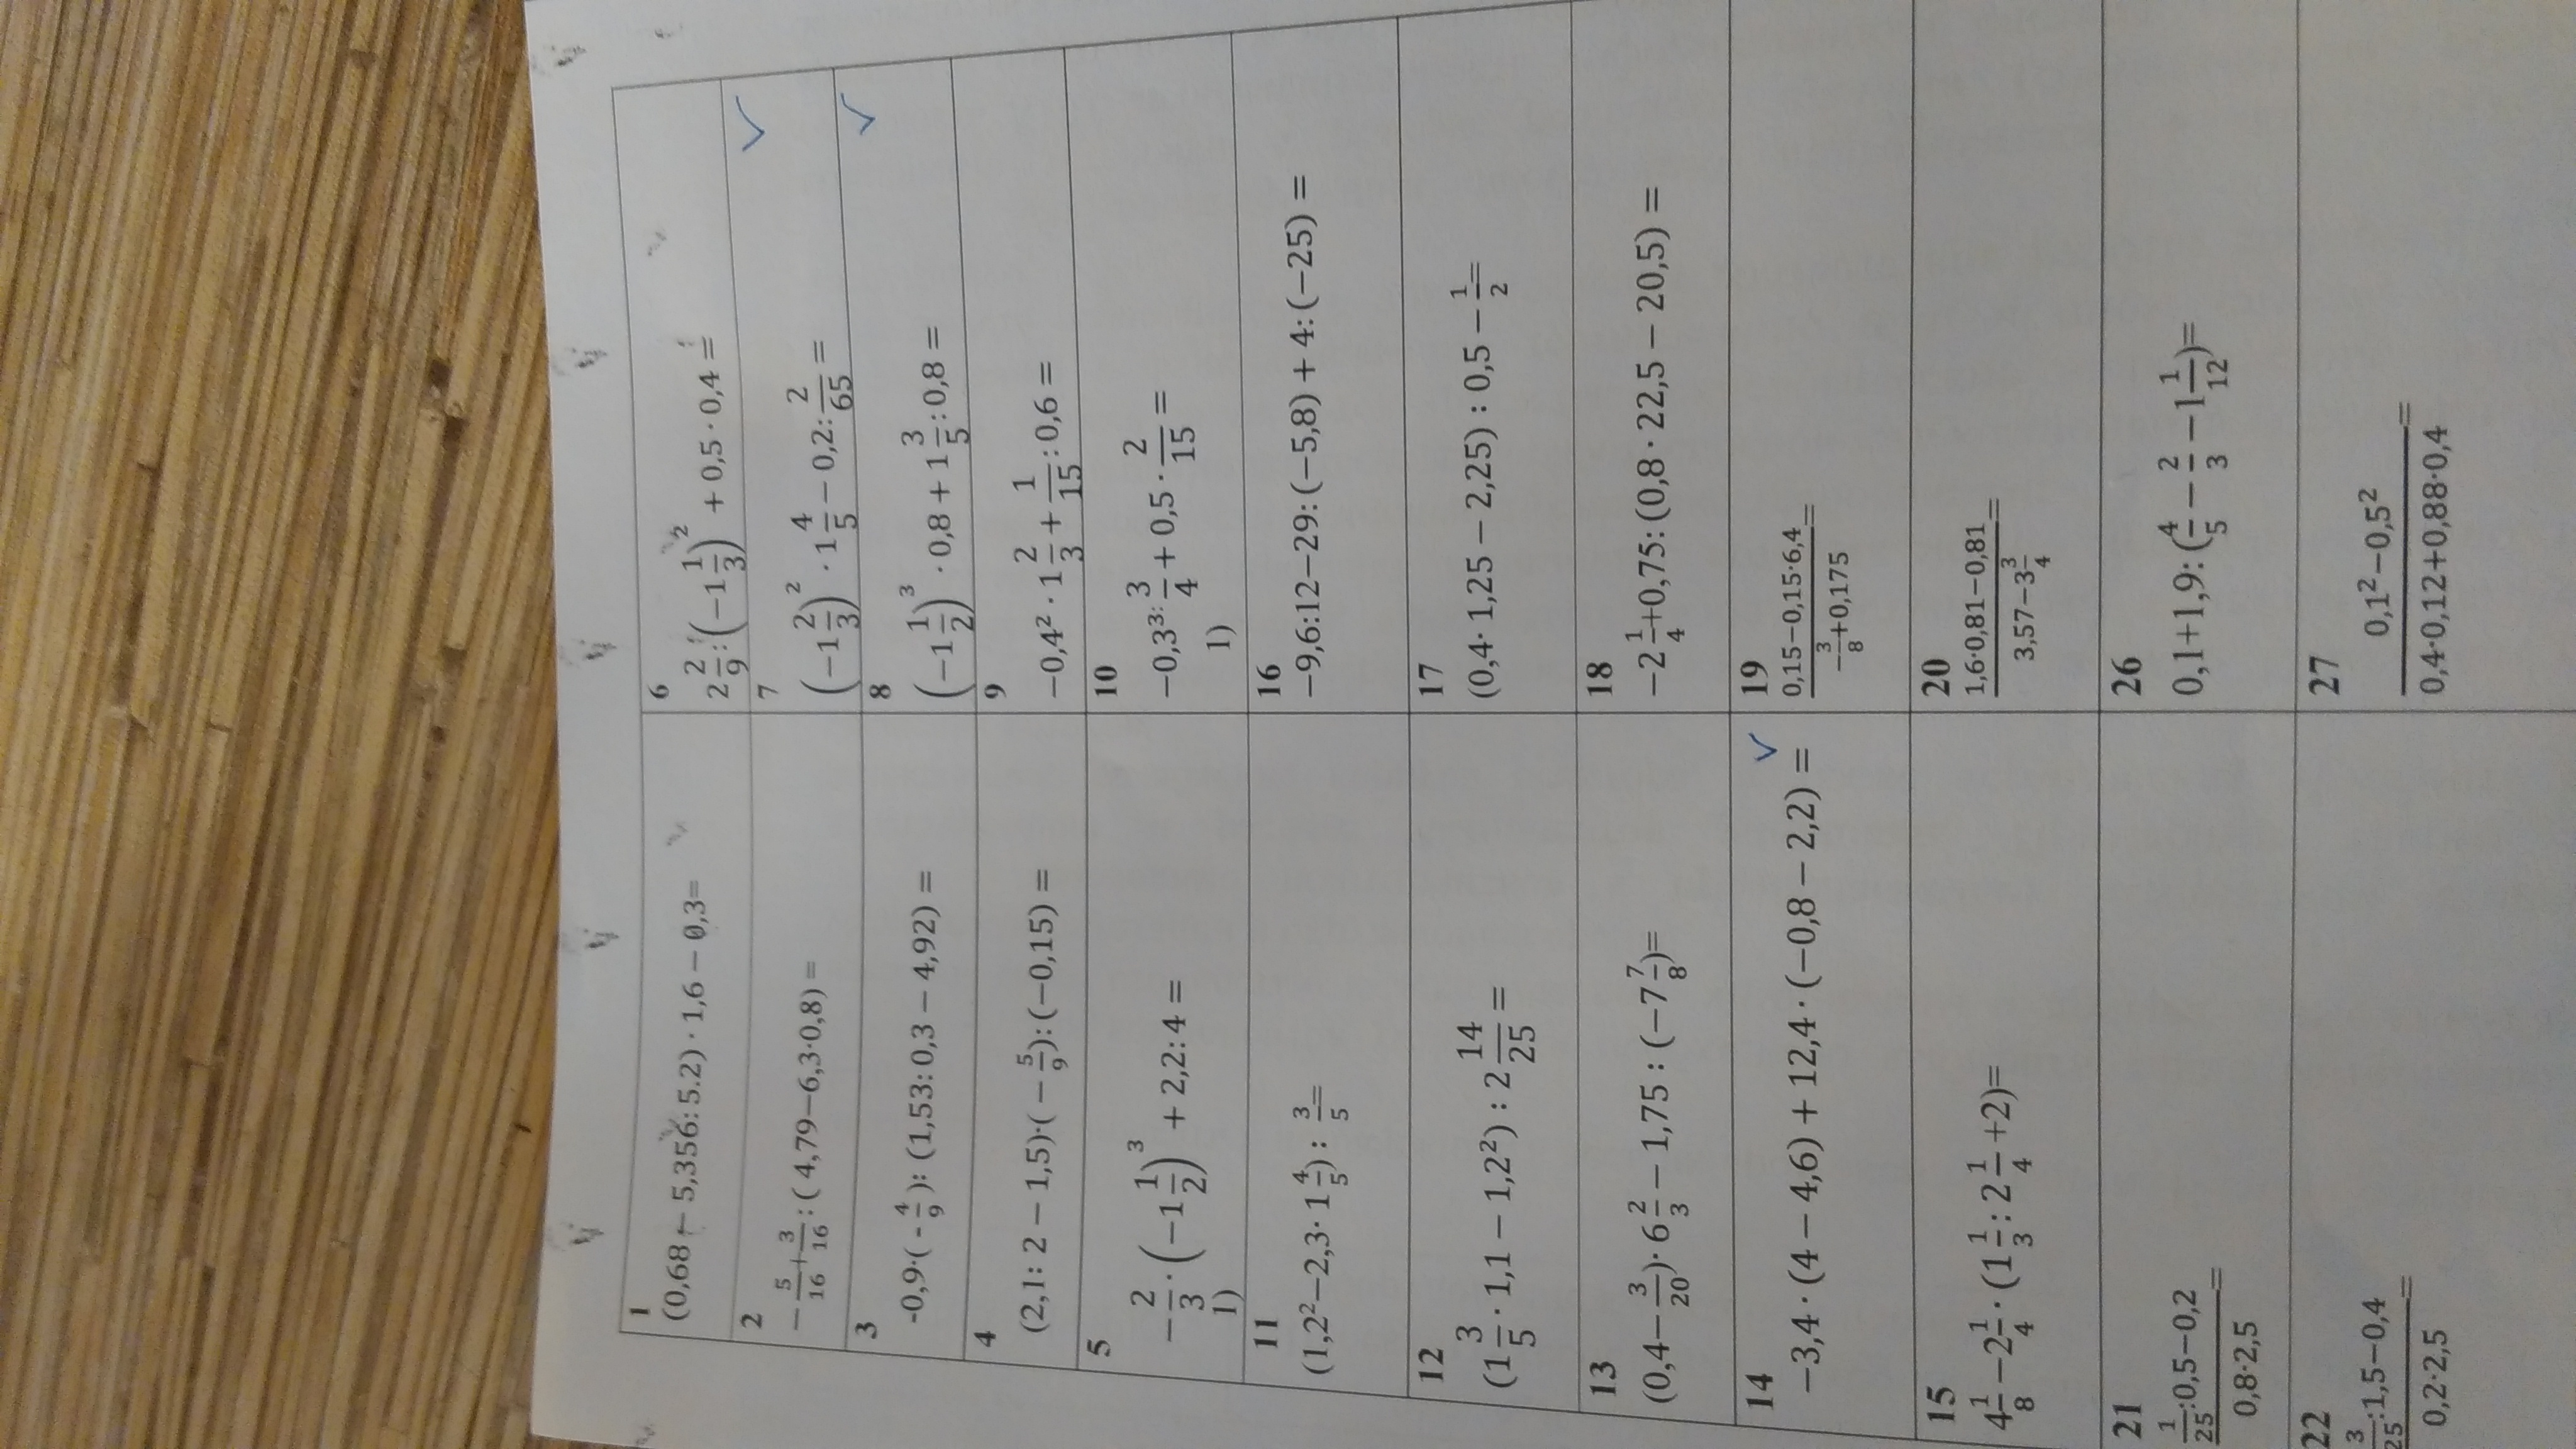 1
(0,68 − 5,356:5.2) · 1,6 − 0,3=
6
2 2/9:(−1 1/3)² + 0,5 · 0,4 =
2
− 5/16 + 3/16 : ( 4,79−6,3·0,8) =
7
(−1 2/3)² · 1 4/5 − 0,2: 2/65 =
3
-0,9·( - 4/9 ): (1,53: 0,3 − 4,92) =
8
(−1 1/2)³ · 0,8 + 1 3/5 : 0,8 =
4
(2,1: 2 − 1,5)·( − 5/9 ):(−0,15) =
9
−0,4² · 1 2/3 + 1/15 : 0,6 =
5
− 2/3 · (−1 1/2)³ + 2,2: 4 =
1)
10
−0,3³: 3/4 + 0,5 · 2/15 =
1)
11
(1,2²−2,3· 1 4/5) : 3/5 =
16
−9,6:12−29:(−5,8) + 4:(−25) =
12
(1 3/5 · 1,1 − 1,2²) : 2 14/25 =
17
(0,4· 1,25 − 2,25) : 0,5 − 1/2 =
13
(0,4− 3/20)· 6 2/3 − 1,75 : (−7 7/8)=
18
−2 1/4 +0,75: (0,8 · 22,5 − 20,5) =
14
−3,4 · (4 − 4,6) + 12,4 · (−0,8 − 2,2) =
19
0,15−0,15·6,4 =
− 3/8 +0,175
15
4 1/8 −2 1/4 · (1 1/3 : 2 1/4 +2)=
20
1,6·0,81−0,81 =
3,57−3 3/4
21
1/25 :0,5−0,2 =
0,8·2,5
26
0,1+1,9:( 4/5 − 2/3 −1 1/12)=
22
3/25 :1,5−0,4 =
0,2·2,5
27
0,1²−0,5² =
0,4·0,12+0,88·0,4